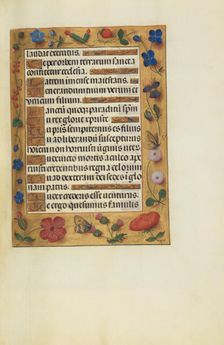 laudat exercitus.
Te per orbem terrarum sancta
confitetur ecclesia.
Patrem immense maiestatis.
Venerandum tuum verum et
unicum filium.
Sanctum quoque paraclitum spm
Tu rex glorie xpe.
Tu patris sempiternus es filius
Tu ad liberandum suscepturus
Tu devicto mortis aculeo
credentibus regna celorum
Tu ad dexteram dei sedes i glo
ria patris.
Iudex crederis esse venturus.
Te ergo quesumus famulis